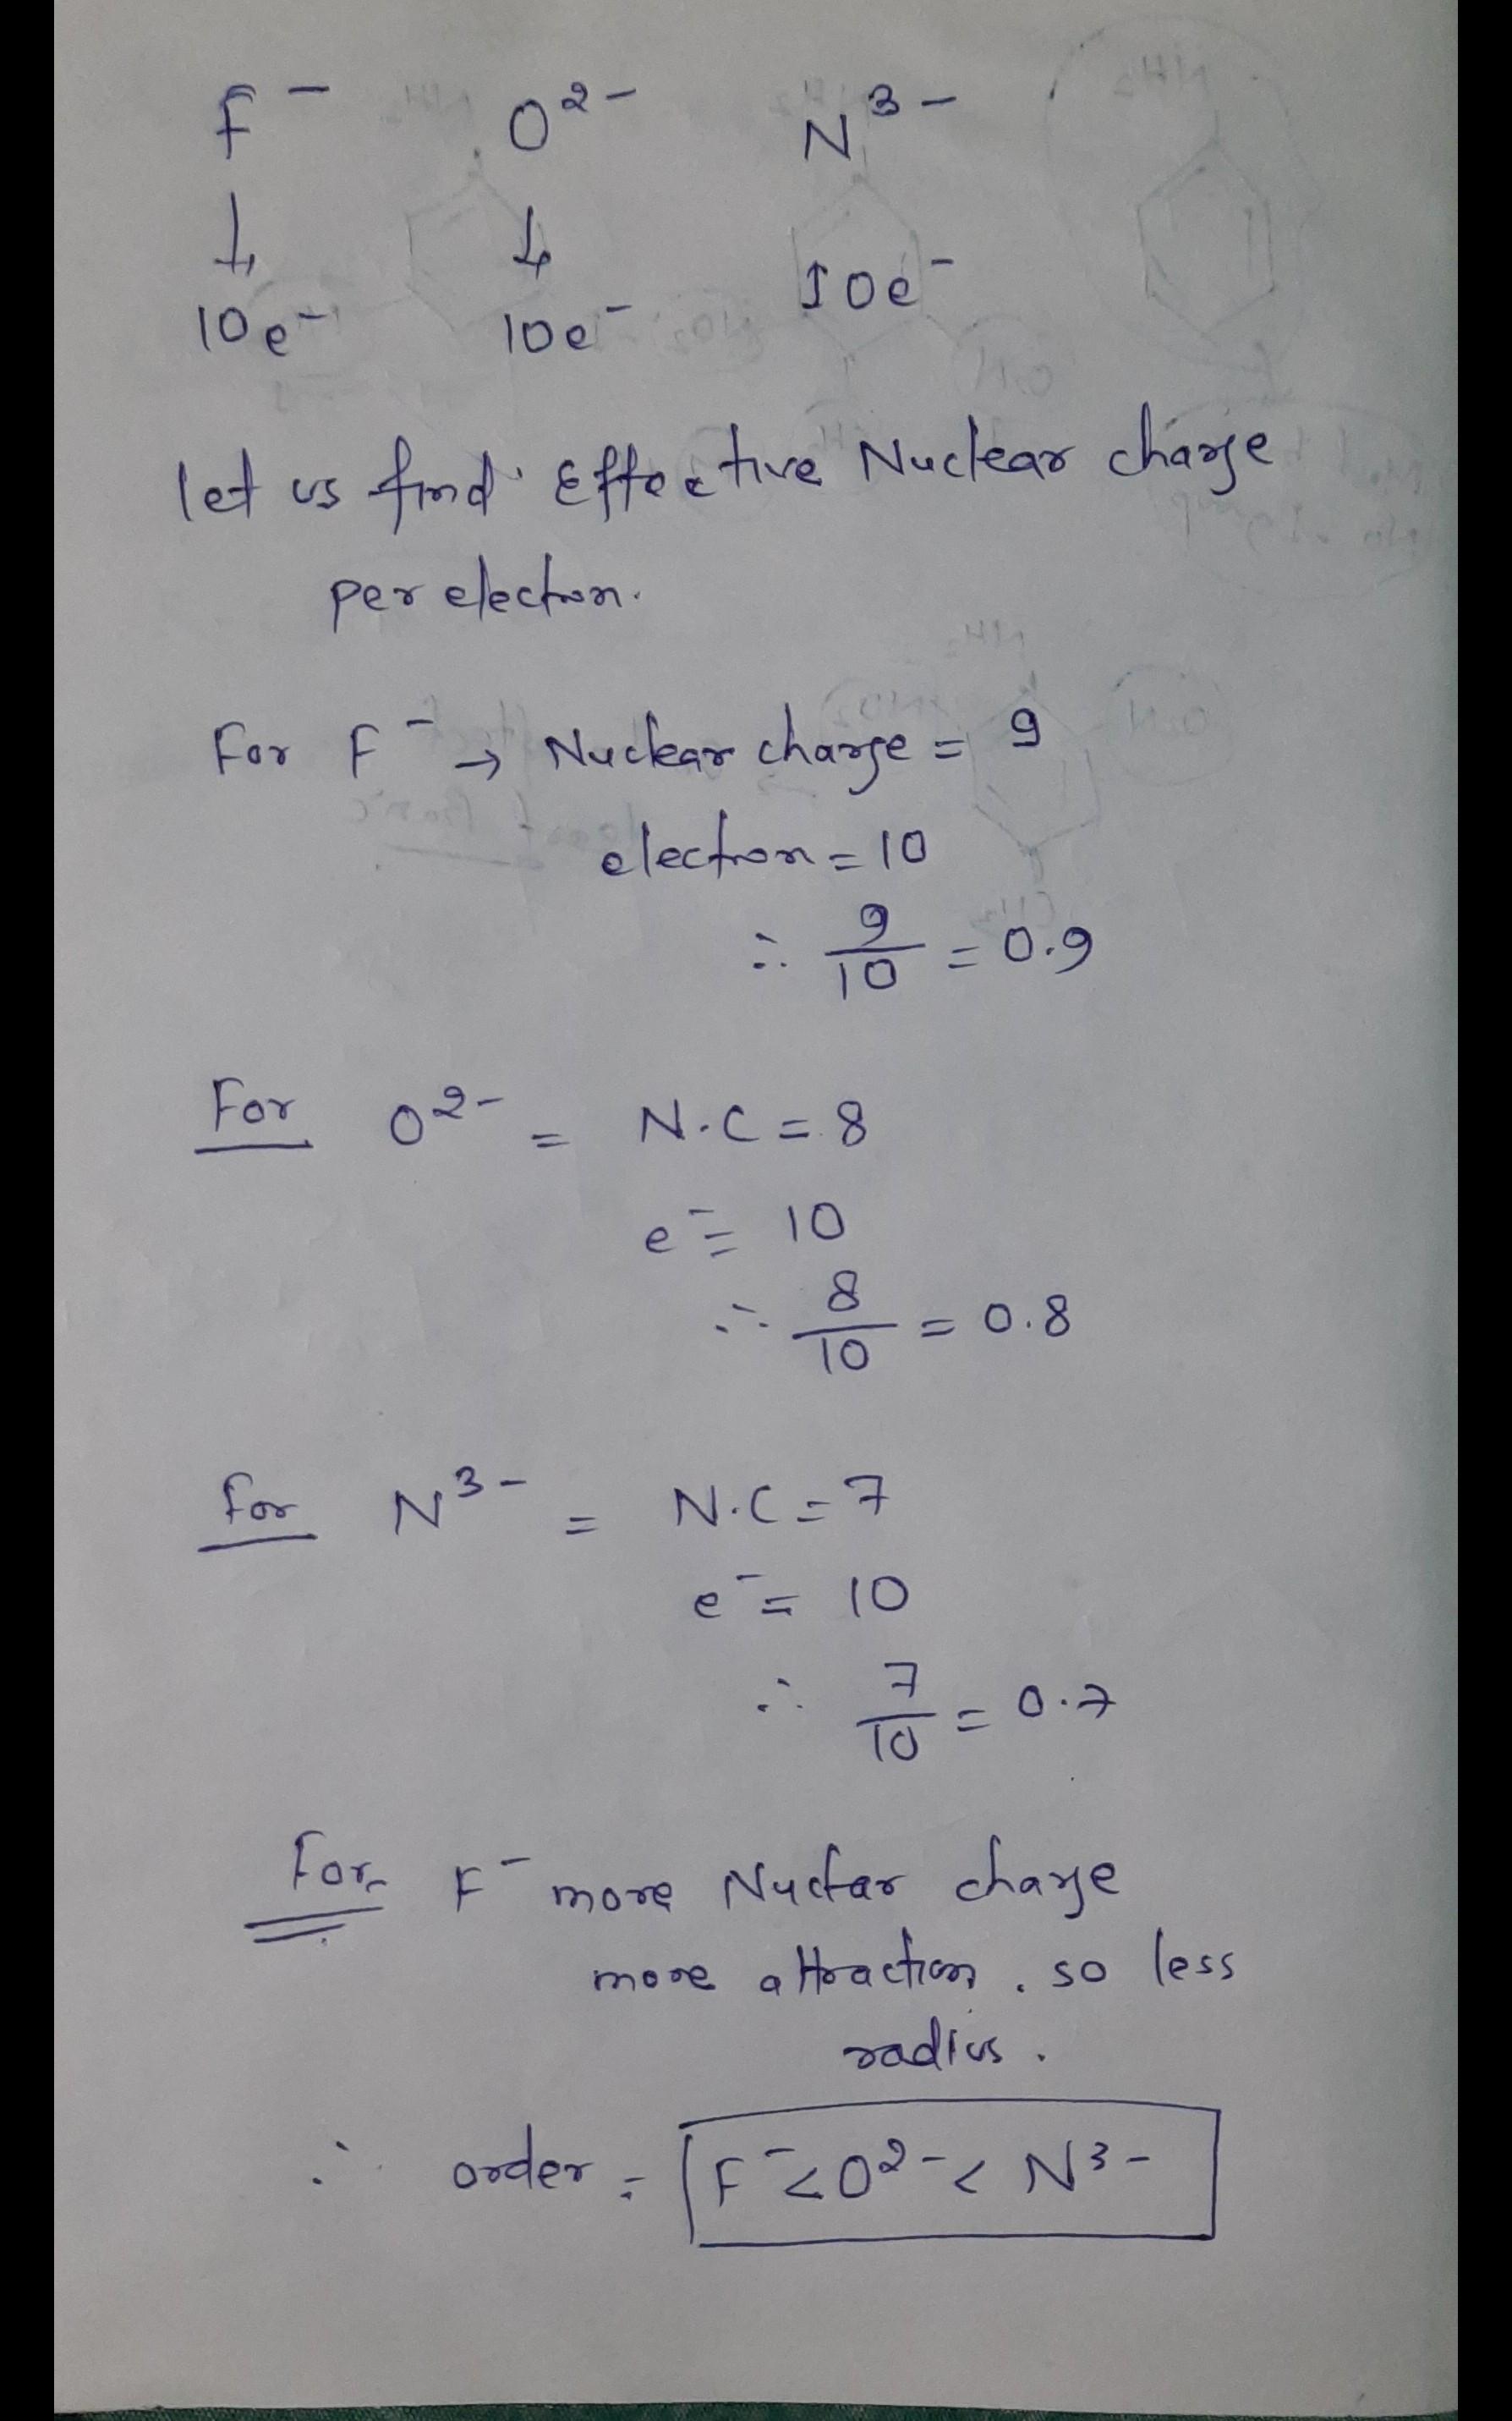 F⁻ O²⁻ N³⁻
↓ ↓
10e⁻ 10e⁻ 10e⁻
let us find Effective Nuclear charge
per electron.
For F⁻ → Nuclear charge = 9
electron = 10
∴ 9/10 = 0.9
For O²⁻ = N.C = 8
e⁻ = 10
∴ 8/10 = 0.8
For N³⁻ = N.C = 7
e⁻ = 10
∴ 7/10 = 0.7
For F⁻ more Nuclar charge
more attraction, so less
radius.
∴ order = F⁻ < O²⁻ < N³⁻